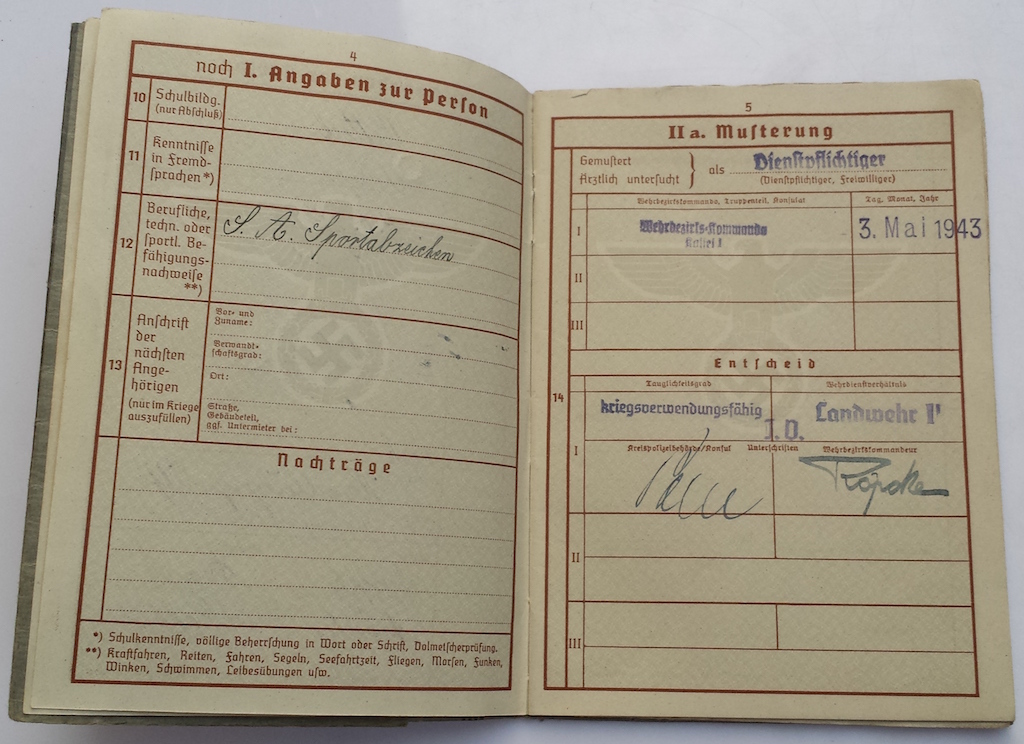 4
noch I. Angaben zur Person
10 Schulbildg.
(nur Abschluß)
11 Kenntnisse
in Fremd-
sprachen*)
12 Berufliche,
techn. oder
sportl. Be-
fähigungs-
nachweise
**)
S. A. Sportabzeichen
13 Anschrift
der
nächsten
Ange-
hörigen
(nur im Kriege
auszufüllen)
Vor- und
Zuname:
Verwandt-
schaftsgrad:
Ort:
Straße,
Gebäudeteil,
ggf. Untermieter bei:
Nachträge
*) Schulkenntnisse, völlige Beherrschung in Wort oder Schrift, Dolmetscherprüfung.
**) Kraftfahren, Reiten, Fahren, Segeln, Seefahrtzeit, Fliegen, Morsen, Funken,
Winken, Schwimmen, Leibesübungen usw.
5
IIa. Musterung
Gemustert
Ärztlich untersucht } als Dienstpflichtiger
(Dienstpflichtiger, Freiwilliger)
Wehrbezirkskommando, Truppenteil, Konsulat
Tag, Monat, Jahr
I Wehrbezirks-Kommando
3. Mai 1943
II
III
Entscheid
14
Tauglichkeitsgrad
Wehrdienstverhältnis
kriegsverwendungsfähig
Landwehr I
I.D.
I Kreispolizeibehörde/Konsul Unterschriften Wehrbezirkskommandeur
Röpcke
II
III